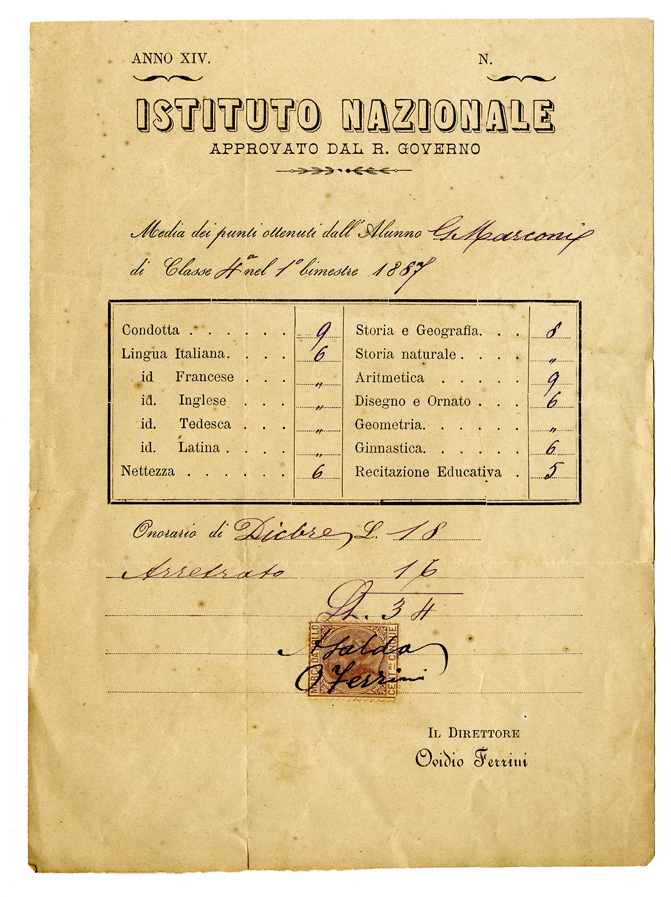 ANNO XIV.
N.
ISTITUTO NAZIONALE
APPROVATO DAL R. GOVERNO
Media dei punti ottenuti dall' Alunno G. Marconi
di Classe 4ª nel 1º bimestre 1887
Condotta . . . . . . 9
Lingua Italiana. . . . 6
id Francese . . . „
id. Inglese . . . „
id. Tedesca . . . „
id. Latina . . . . „
Nettezza . . . . . . 6
Storia e Geografia. . . 8
Storia naturale . . . . „
Aritmetica . . . . 9
Disegno e Ornato . . . 6
Geometria. . . . . „
Ginnastica. . . . . 6
Recitazione Educativa . 5
Onorario di Dicbre, L. 18
Arretrato 16
Lt. 34
A Saldo
O Ferrini
MARCA DA BOLLO
CENT.MI CINQUE
IL DIRETTORE
Ovidio Ferrini